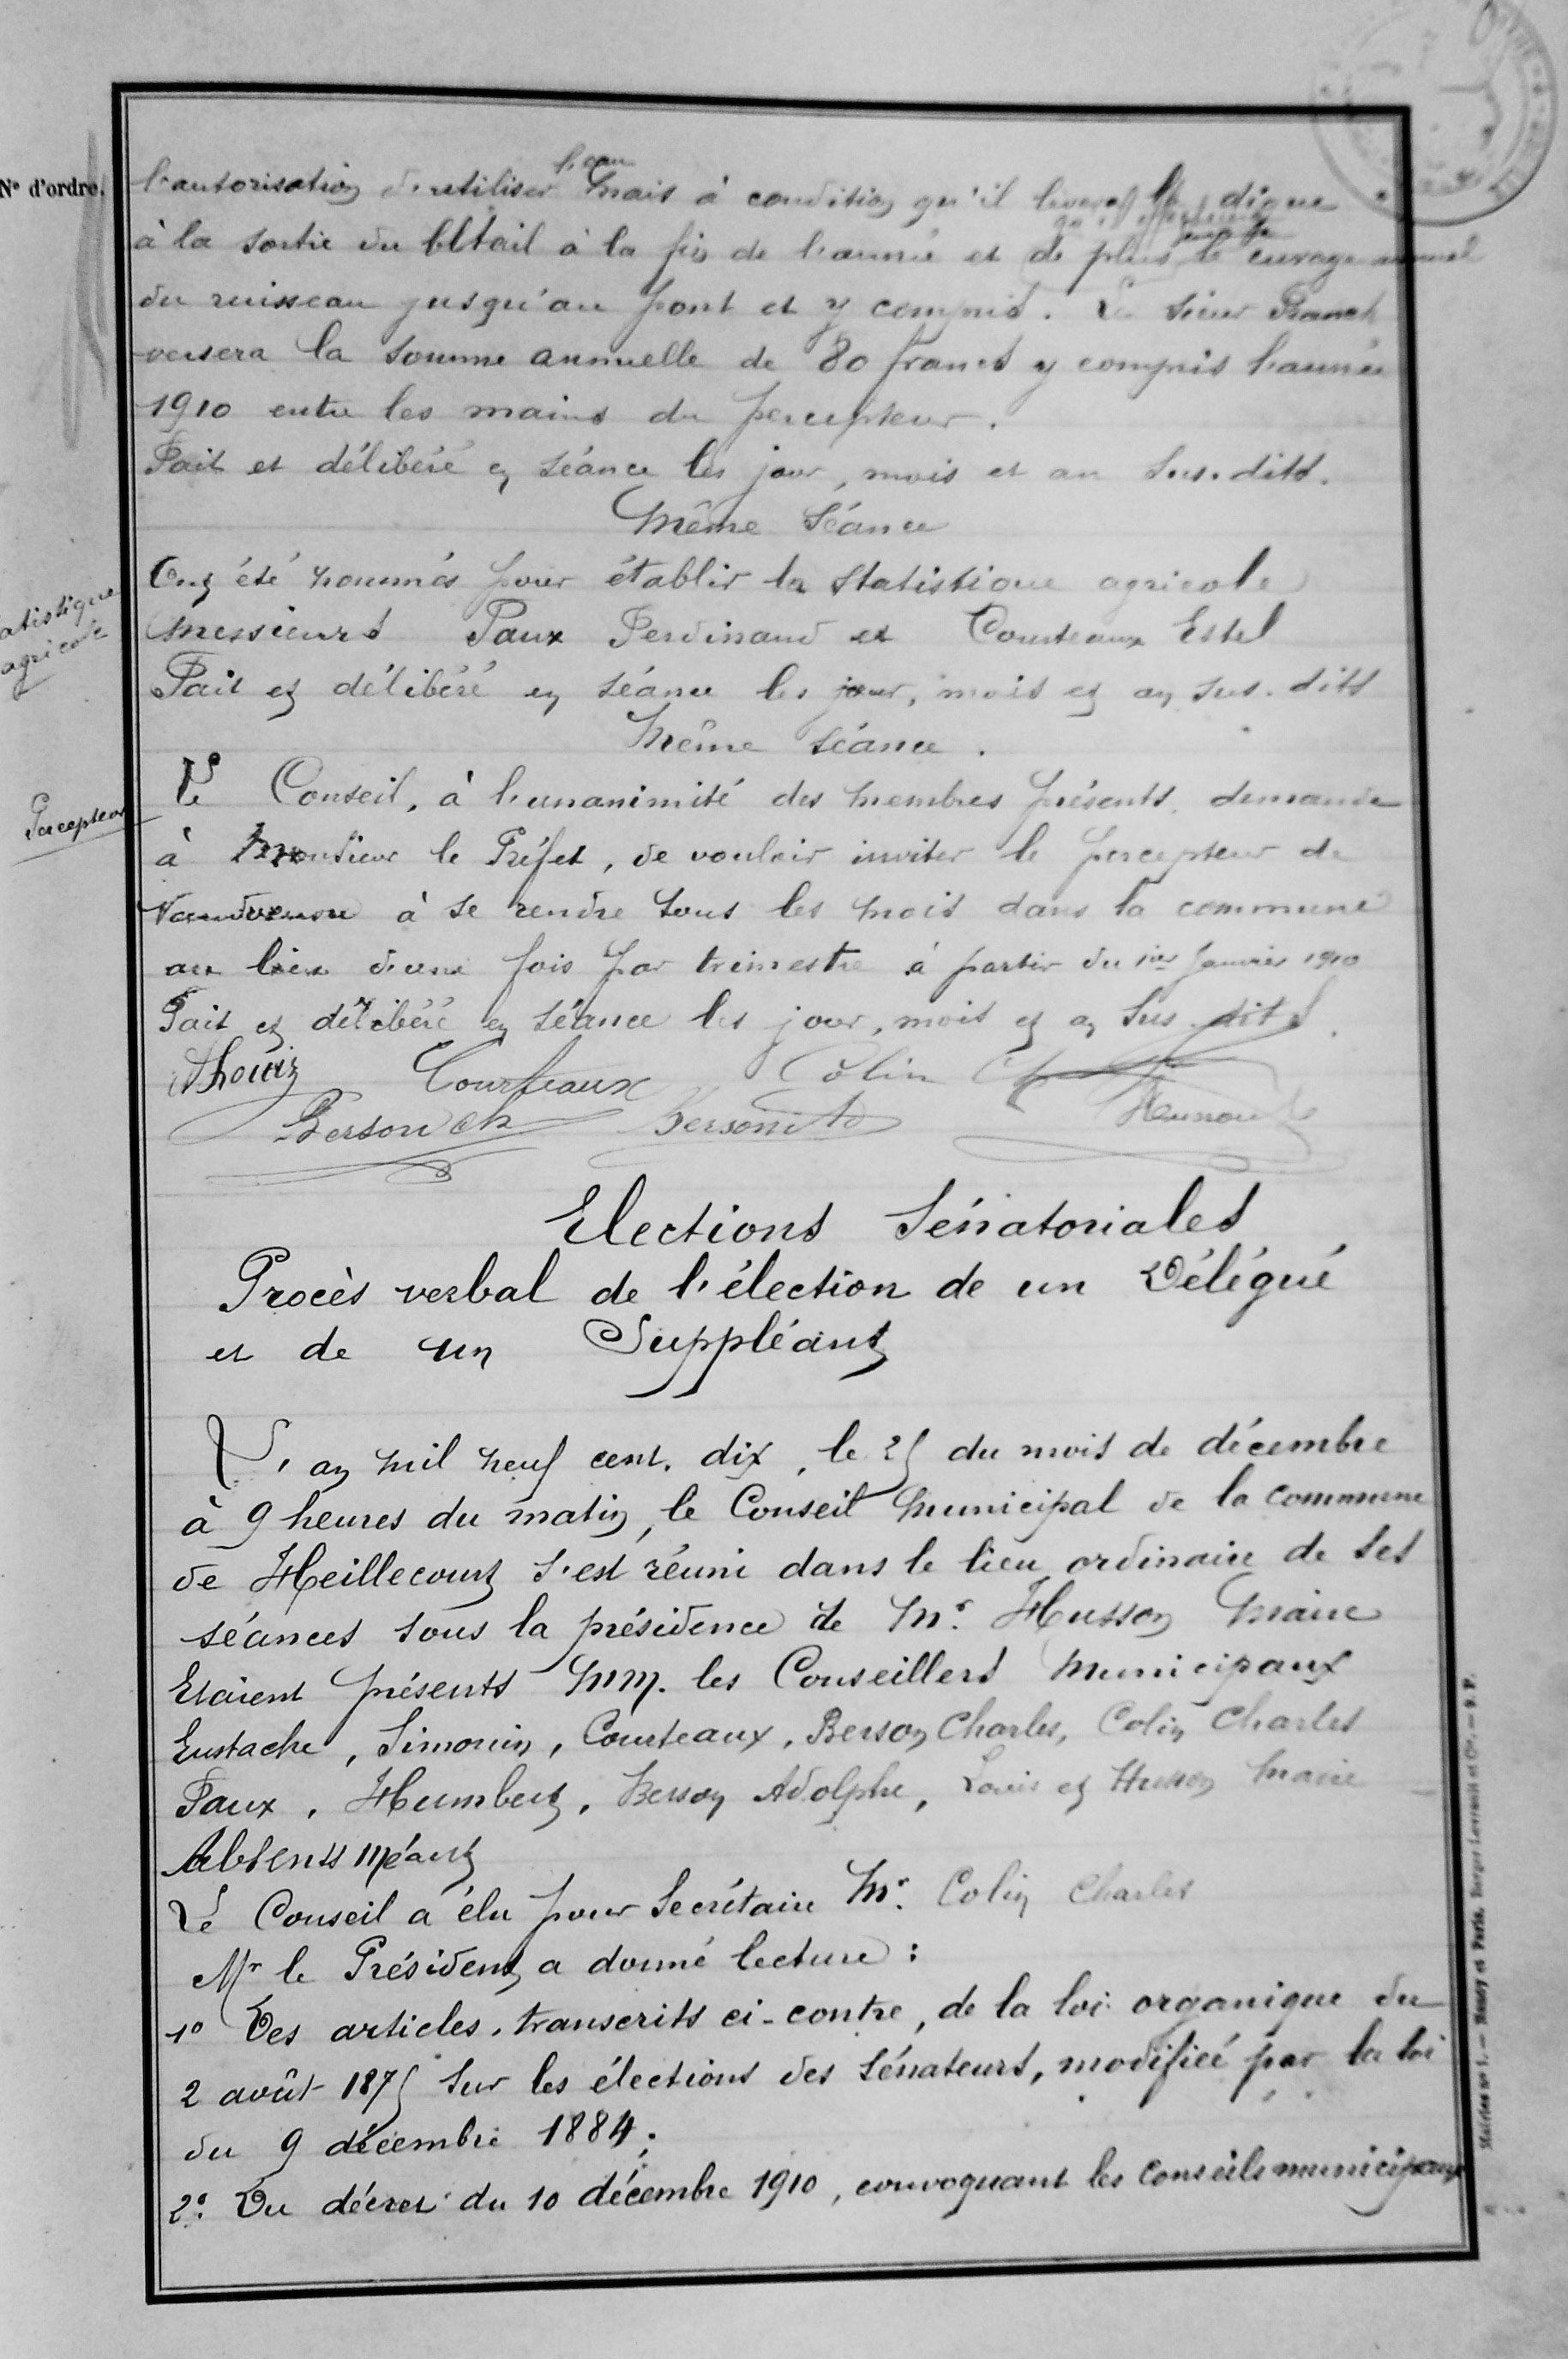 N° d'ordre.
l'eau
l'autorisation d'utiliser mais à condition qu'il lèvera la digue
à la sortie du bétail à la fin de l'année et de plus le curage annuel
du ruisseau jusqu'au pont et y compris. Le sieur
versera la somme annuelle de 80 francs y compris l'année
1910 entre les mains du percepteur.
Fait et délibéré en séance les jour, mois et an sus-dits.
Même séance
Ont été nommés pour établir la statistique agricole
Statistique
agricole
Messieurs Faux Ferdinand et Courteaux Estel
Fait et délibéré en séance les jour, mois et an sus-dits
Même séance.
Percepteur
Le Conseil, à l'unanimité des membres présents, demande
à Monsieur le Préfet, de vouloir inviter le percepteur de
à se rendre tous les mois dans la commune
au lieu d'une fois par trimestre à partir du 1er Janvier 1910
Fait et délibéré en séance les jour, mois et an sus-dits.
Louis Courteaux Colin Ch
Berson Ch Berson Ad
Elections Sénatoriales
Procès verbal de l'élection de un Délégué
et de un Suppléant
L'an mil neuf cent dix, le 25 du mois de décembre
à 9 heures du matin, le Conseil Municipal de la commune
de Heillecourt s'est réuni dans le lieu ordinaire de ses
séances sous la présidence de Mr. Husson Maire
Etaient présents MM. les Conseillers Municipaux
Eustache, Simonin, Courteaux, Berson Charles, Colin Charles
Faux, Humbert, Berson Adolphe, Louis et Husson Maire
Absents néant
Le Conseil a élu pour Secrétaire Mr. Colin Charles
Mr le Président a donné lecture :
1° Des articles, transcrits ci-contre, de la loi organique du
2 août 1875 sur les élections des Sénateurs, modifiée par la loi
du 9 décembre 1884 ;
2° Du décret du 10 décembre 1910, convoquant les conseils municipaux
Mairies n° 1. — Nancy et Paris, Berger-Levrault et Cie. — 9. P.